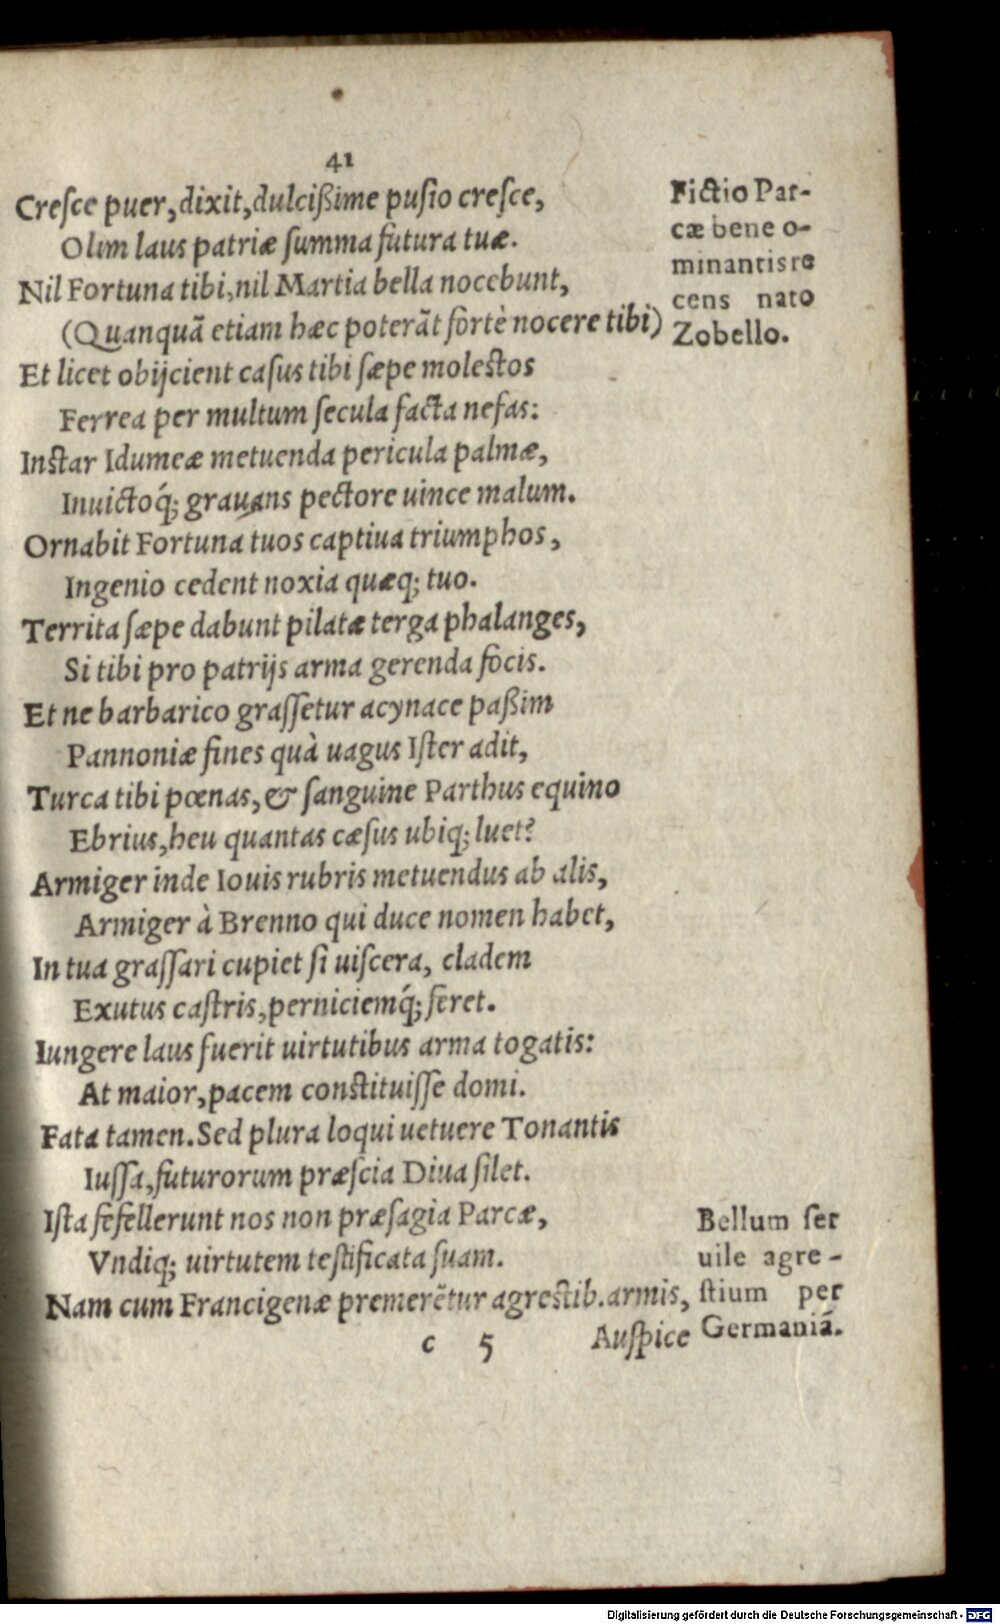 41
Creſce puer, dixit, dulcißime puſio creſce,
Olim laus patriæ ſumma futura tuæ.
Nil Fortuna tibi, nil Martia bella nocebunt,
(Quanquā etiam hæc poterāt fortè nocere tibi)
Et licet obijcient caſus tibi ſæpe moleſtos
Ferrea per multum ſecula facta nefas:
Inſtar Idumeæ metuenda pericula palmæ,
Inuictoq́; grauans pectore uince malum.
Ornabit Fortuna tuos captiua triumphos,
Ingenio cedent noxia quæq; tuo.
Territa ſæpe dabunt pilatæ terga phalanges,
Si tibi pro patrijs arma gerenda focis.
Et ne barbarico graſſetur acynace paßim
Pannoniæ fines quà uagus Iſter adit,
Turca tibi pœnas, & ſanguine Parthus equino
Ebrius, heu quantas cæſus ubiq; luet?
Armiger inde Iouis rubris metuendus ab alis,
Armiger à Brenno qui duce nomen habet,
In tua graſſari cupiet ſi uiſcera, cladem
Exutus caſtris, perniciemq́; feret.
Iungere laus fuerit uirtutibus arma togatis:
At maior, pacem conſtituiſſe domi.
Fata tamen. Sed plura loqui uetuere Tonantis
Iuſſa, futurorum præſcia Diua ſilet.
Iſta fefellerunt nos non præſagia Parcæ,
Vndiq; uirtutem teſtificata ſuam.
Nam cum Francigenæ premerētur agreſtib. armis,
c 5
Auſpice
Fictio Par-
cæ bene o-
minantis re
cens nato
Zobello.
Bellum ſer
uile agre-
ſtium per
Germaniā.
Digitalisierung gefördert durch die Deutsche Forschungsgemeinschaft - DFG